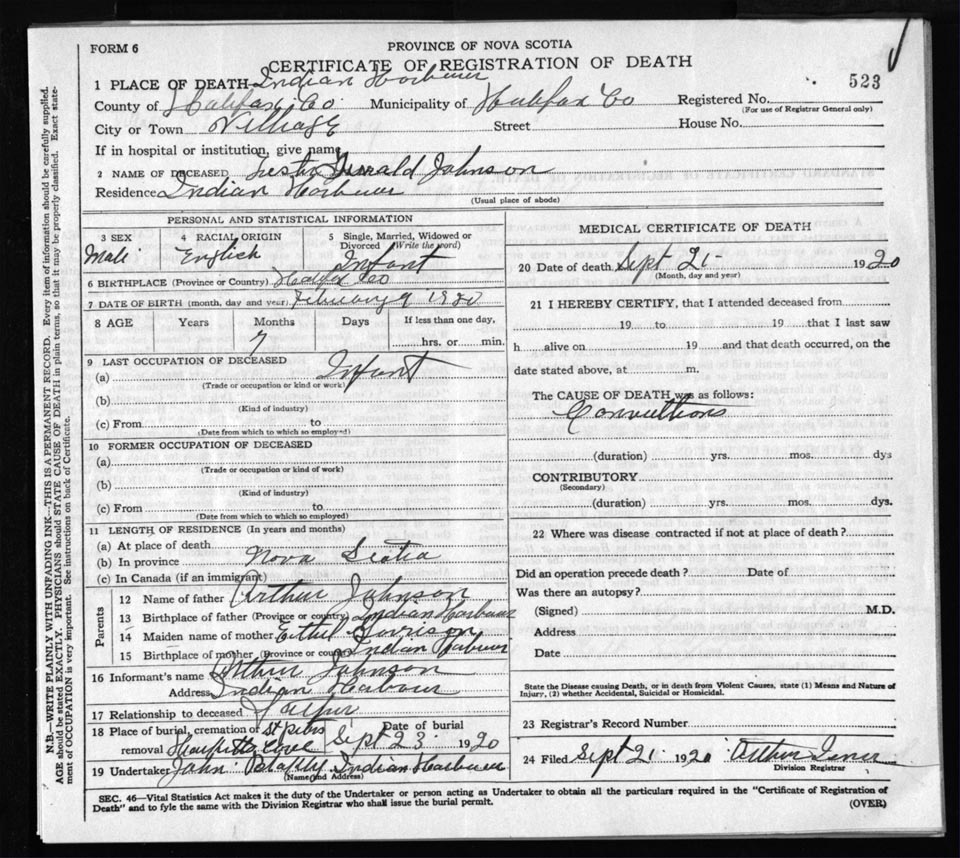 FORM 6
PROVINCE OF NOVA SCOTIA
CERTIFICATE OF REGISTRATION OF DEATH
523
1 PLACE OF DEATH Indian Harbour
County of Halifax Co Municipality of Halifax Co Registered No.
(For use of Registrar General only)
City or Town Village Street House No.
If in hospital or institution, give name
2 NAME OF DECEASED Gerald Johnson
Residence Indian Harbour
(Usual place of abode)
PERSONAL AND STATISTICAL INFORMATION
3 SEX 4 RACIAL ORIGIN 5 Single, Married, Widowed or Divorced (Write the word)
Male English Infant
6 BIRTHPLACE (Province or Country) Halifax Co
7 DATE OF BIRTH (month, day and year) February 9 1920
8 AGE Years Months Days If less than one day,
7 hrs. or min.
9 LAST OCCUPATION OF DECEASED
(a) Infant
(Trade or occupation or kind or work)
(b)
(Kind of industry)
(c) From to
(Date from which to which so employed)
10 FORMER OCCUPATION OF DECEASED
(a)
(Trade or occupation or kind of work)
(b)
(Kind of industry)
(c) From to
(Date from which to which so employed)
11 LENGTH OF RESIDENCE (In years and months)
(a) At place of death
(b) In province Nova Scotia
(c) In Canada (if an immigrant)
Parents
12 Name of father Arthur Johnson
13 Birthplace of father (Province or country) Indian Harbour
14 Maiden name of mother
15 Birthplace of mother (Province or country) Indian Harbour
16 Informant's name Arthur Johnson
Address Indian Harbour
17 Relationship to deceased
18 Place of burial, cremation or removal St Date of burial
Cove Sept 23 1920
19 Undertaker John Indian Harbour
(Name and Address)
MEDICAL CERTIFICATE OF DEATH
20 Date of death Sept 21 1920
(Month, day and year)
21 I HEREBY CERTIFY, that I attended deceased from
19 to 19 that I last saw
h alive on 19 and that death occurred, on the
date stated above, at m.
The CAUSE OF DEATH was as follows:
(duration) yrs. mos. dys
CONTRIBUTORY
(Secondary)
(duration) yrs. mos. dys.
22 Where was disease contracted if not at place of death?
Did an operation precede death? Date of
Was there an autopsy?
(Signed) M.D.
Address
Date
State the Disease causing Death, or in death from Violent Causes, state (1) Means and Nature of
Injury, (2) whether Accidental, Suicidal or Homicidal.
23 Registrar's Record Number
24 Filed Sept 21 1920 Arthur
Division Registrar
SEC. 46—Vital Statistics Act makes it the duty of the Undertaker or person acting as Undertaker to obtain all the particulars required in the "Certificate of Registration of
Death" and to fyle the same with the Division Registrar who shall issue the burial permit. (OVER)
N.B.—WRITE PLAINLY WITH UNFADING INK—THIS IS A PERMANENT RECORD. Every item of information should be carefully supplied.
AGE should be stated EXACTLY. PHYSICIANS should STATE CAUSE OF DEATH in plain terms, so that it may be properly classified. Exact state-
ment of OCCUPATION is very important. See instructions on back of Certificate.